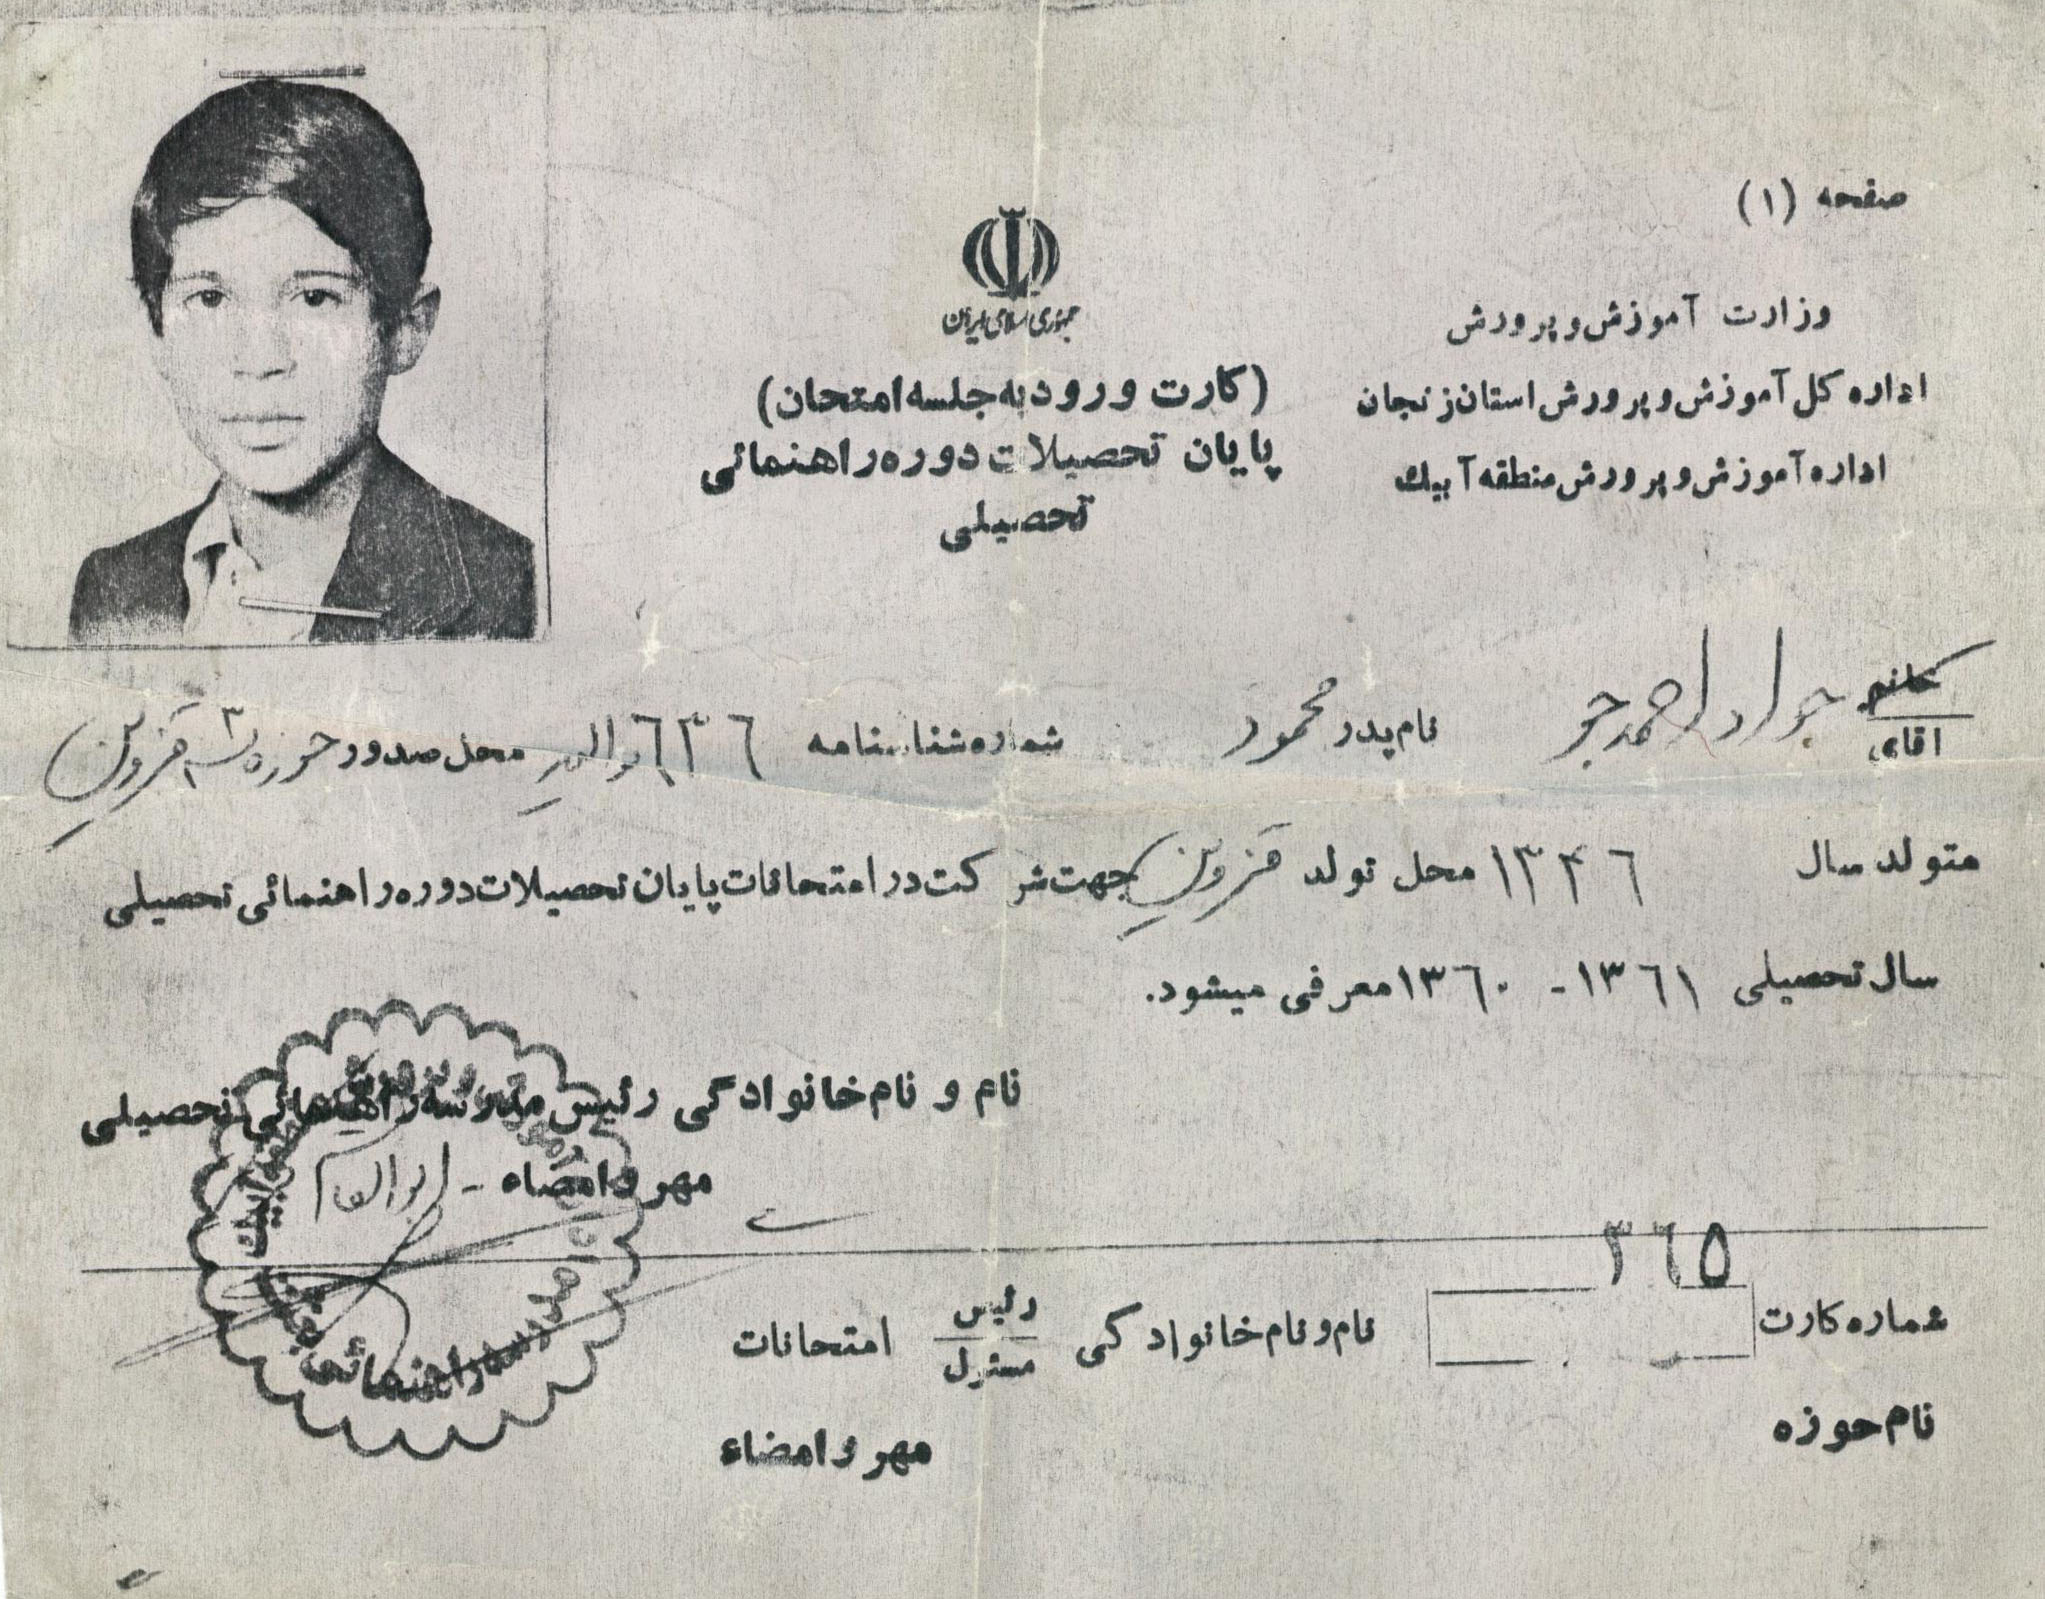 صفحه (۱)
جمهوری اسلامی ایران
وزارت آموزش و پرورش
اداره کل آموزش و پرورش استان زنجان
اداره آموزش و پرورش منطقه آبیك
(کارت ورود به جلسه امتحان)
پایان تحصیلات دوره راهنمائی
تحصیلی
خانم
آقای جواد احمد جو نام پدر محمود شماره شناسنامه ۶۳۶ محل صدور حوزه ۳ قزوین
متولد سال ۱۳۴۶ محل تولد قزوین جهت شرکت در امتحانات پایان تحصیلات دوره راهنمائی تحصیلی
سال تحصیلی ۱۳۶۱ - ۱۳۶۰ معرفی میشود.
نام و نام خانوادگی رئیس مدرسه راهنمائی تحصیلی
مهر و امضاء -
شماره کارت ۳۶۵ نام و نام خانوادگی رئیس
مسئول امتحانات
نام حوزه مهر و امضاء